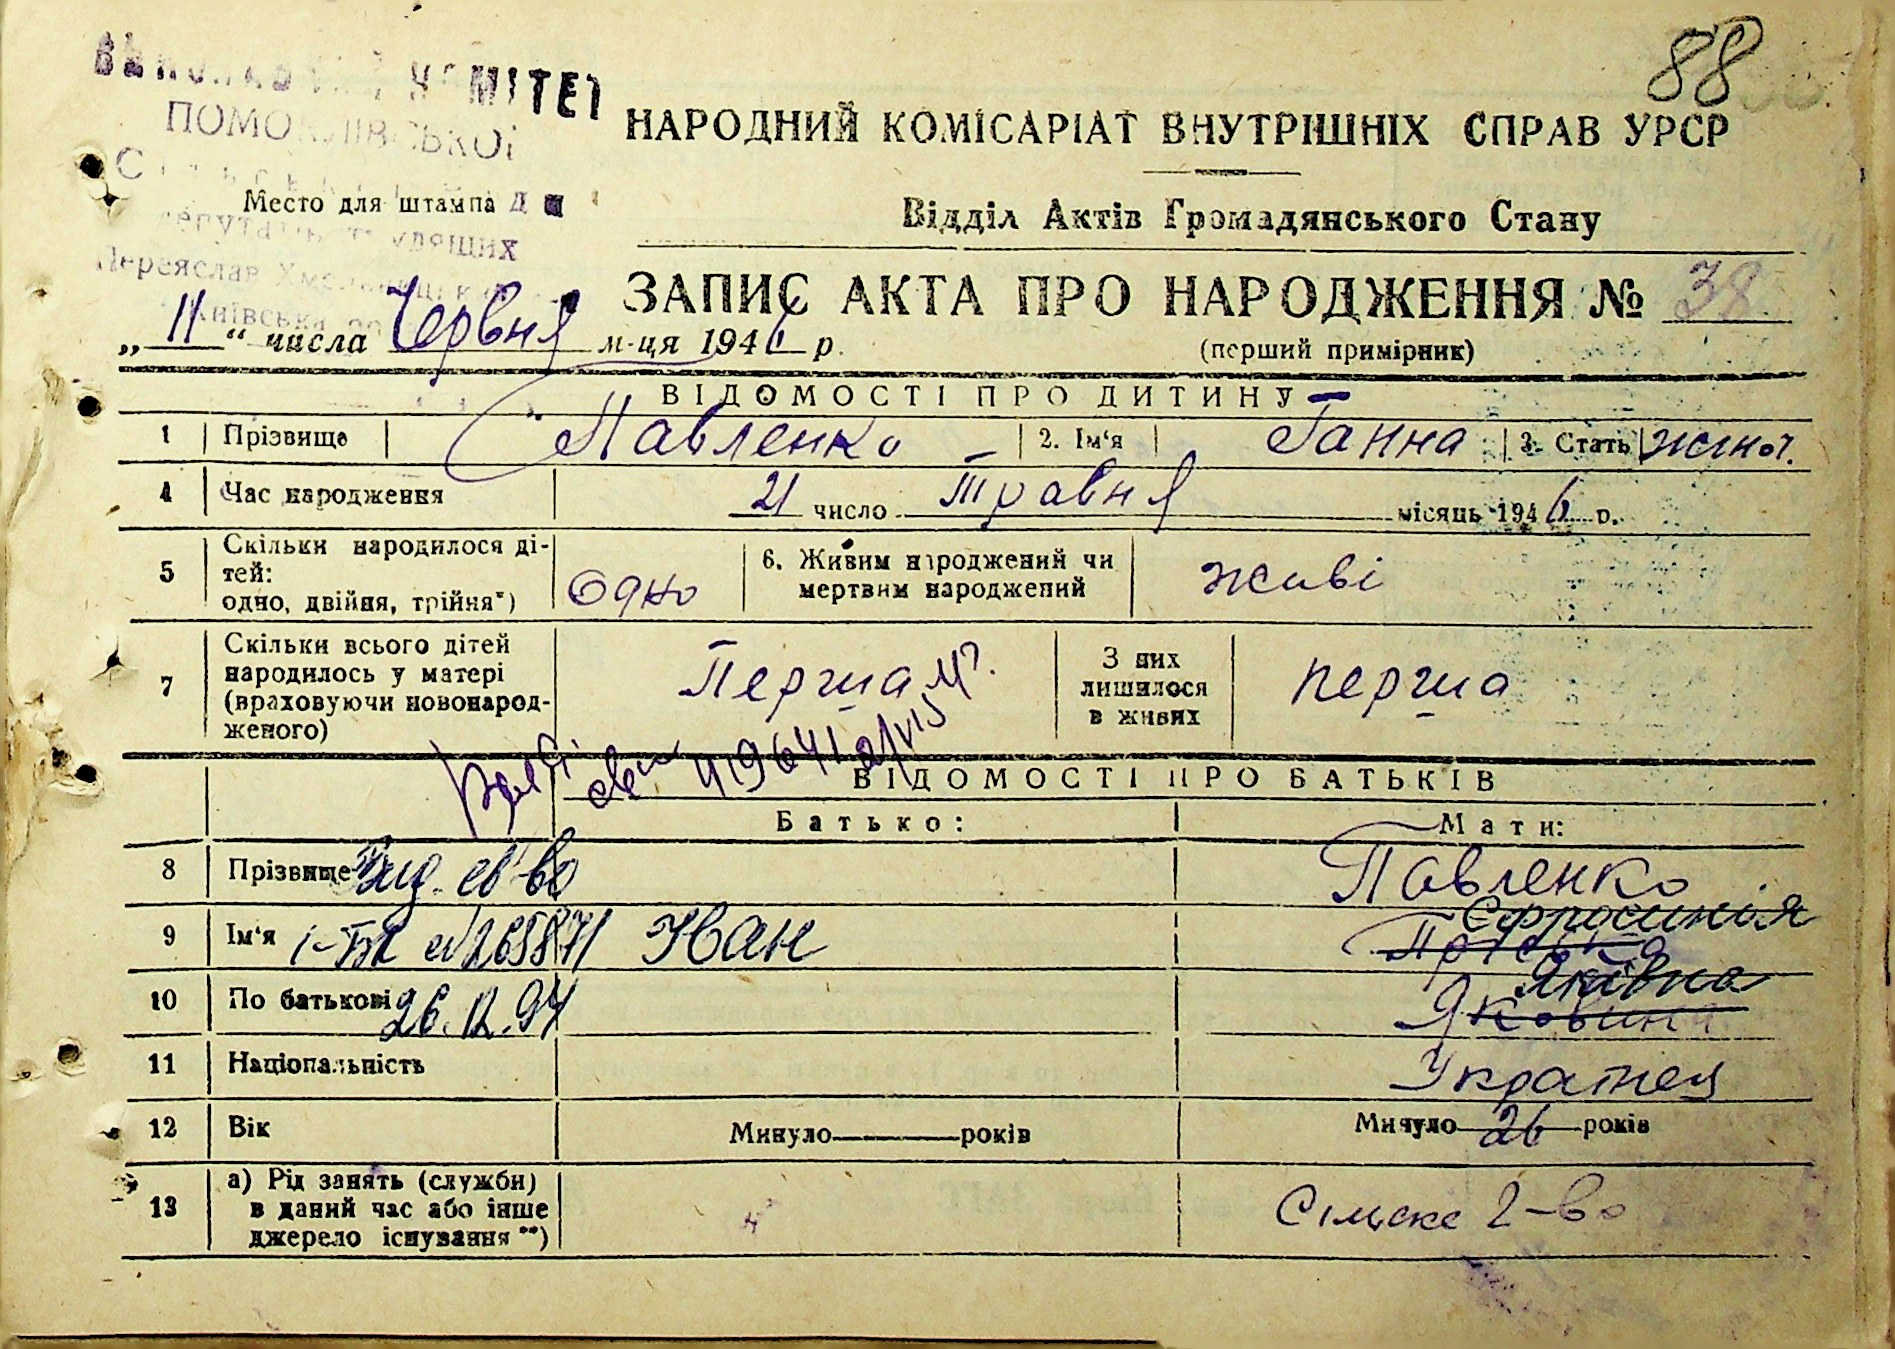 88
КОМІТЕТ
ПОМОКЛІВСЬКОЇ
Место для штампа
депутатів трудящих
Переяслав Хмельницьк
Київська
НАРОДНИЙ КОМІСАРІАТ ВНУТРІШНІХ СПРАВ УРСР
Відділ Актів Громадянського Стану
ЗАПИС АКТА ПРО НАРОДЖЕННЯ № 38
„ 11 “ числа Червня м-ця 1946 р.
(перший примірник)
ВІДОМОСТІ ПРО ДИТИНУ
1 Прізвище Павленко 2. Ім‘я Ганна 3. Стать жіноч.
4 Час народження 21 число Травня місяць 1946 р.
5 Скільки народилося ді-
тей:
одно, двійня, трійня*) Одно 6. Живим народжений чи
мертвим народжений живі
7 Скільки всього дітей
народилось у матері
(враховуючи новонарод-
женого) Перша З них
лишилося
в живих перша
ВІДОМОСТІ ПРО БАТЬКІВ
Батько: Мати:
8 Прізвище Вид. св-во Павленко
Єфросинія
9 Ім‘я І-БК №265871 Іван
Яківна
10 По батькові 26.12.94 Яковина
11 Національність Українка
12 Вік Минуло років Минуло 26 років
13 а) Рід занять (служби)
в даний час або інше
джерело існування **) Сільське г-во